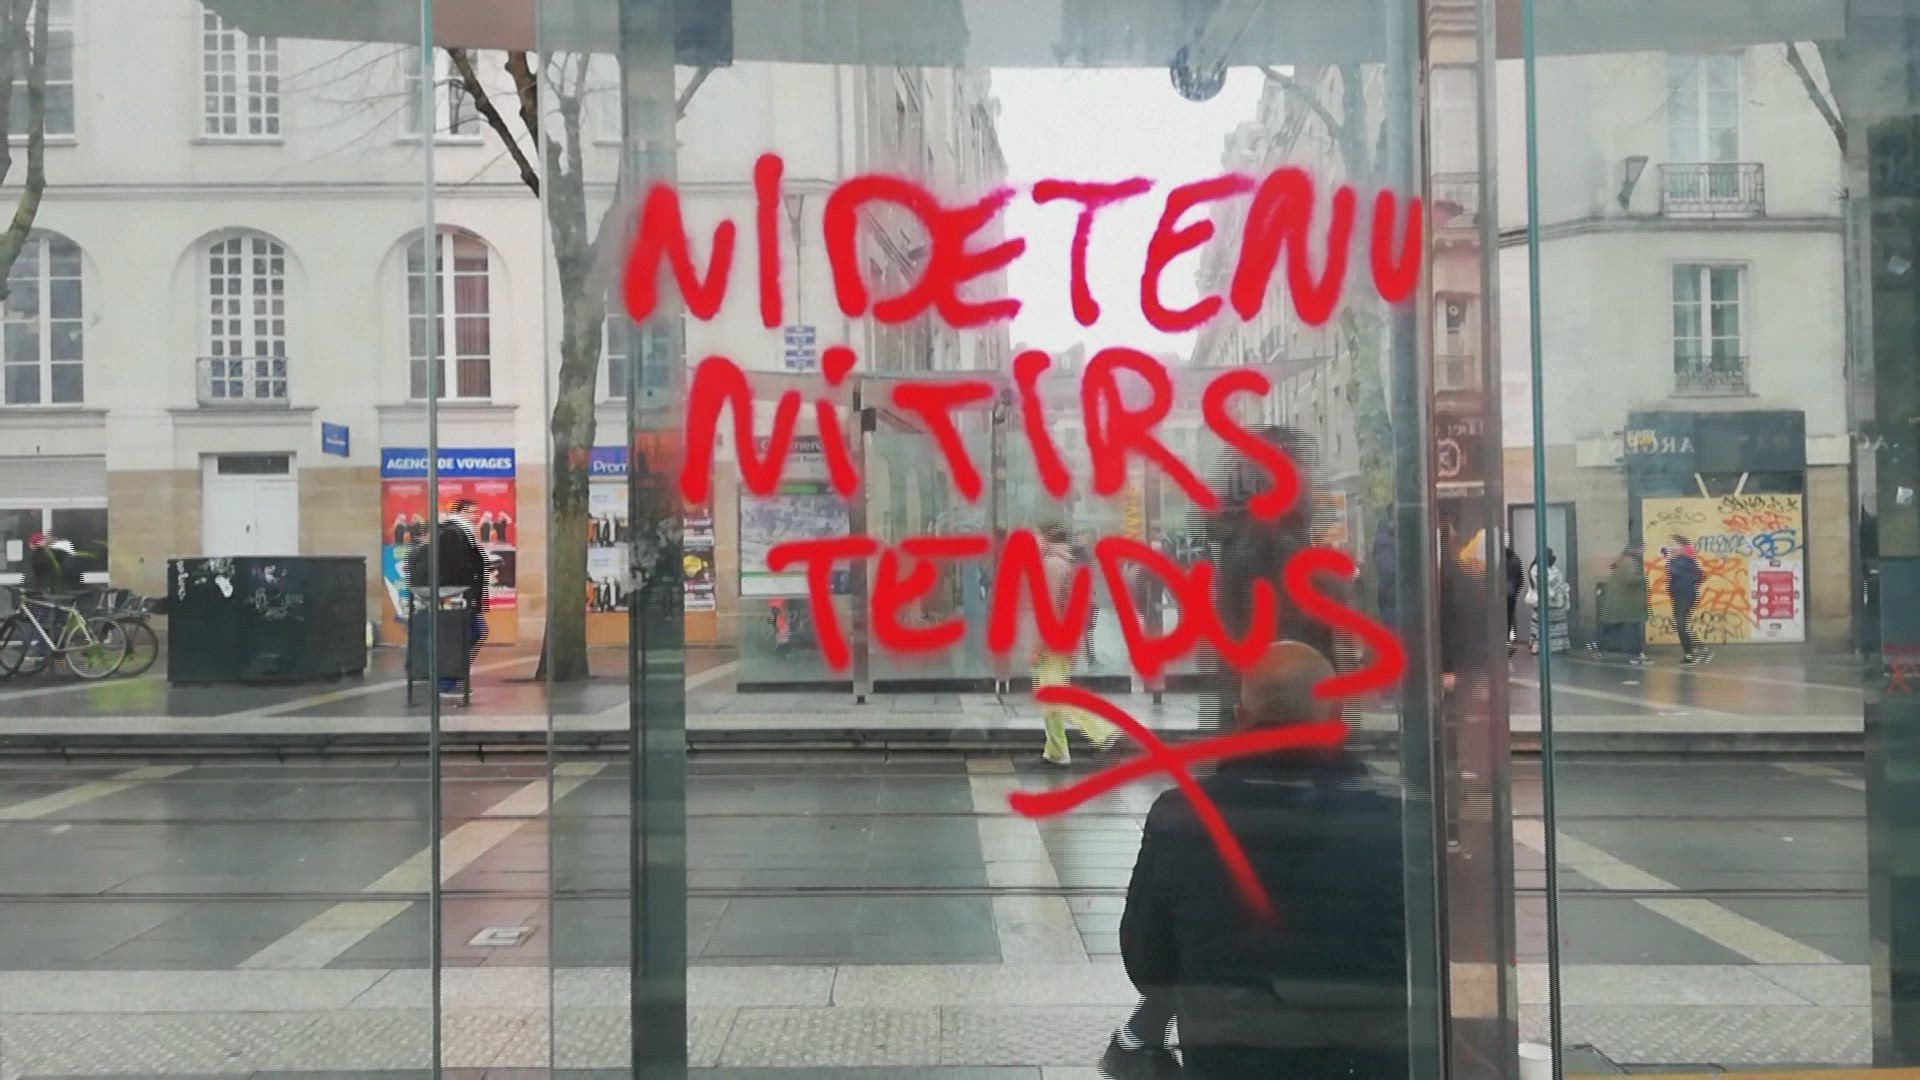 NI DETENU
NI TIRS
TENDUS
AGENCE DE VOYAGES
Prom